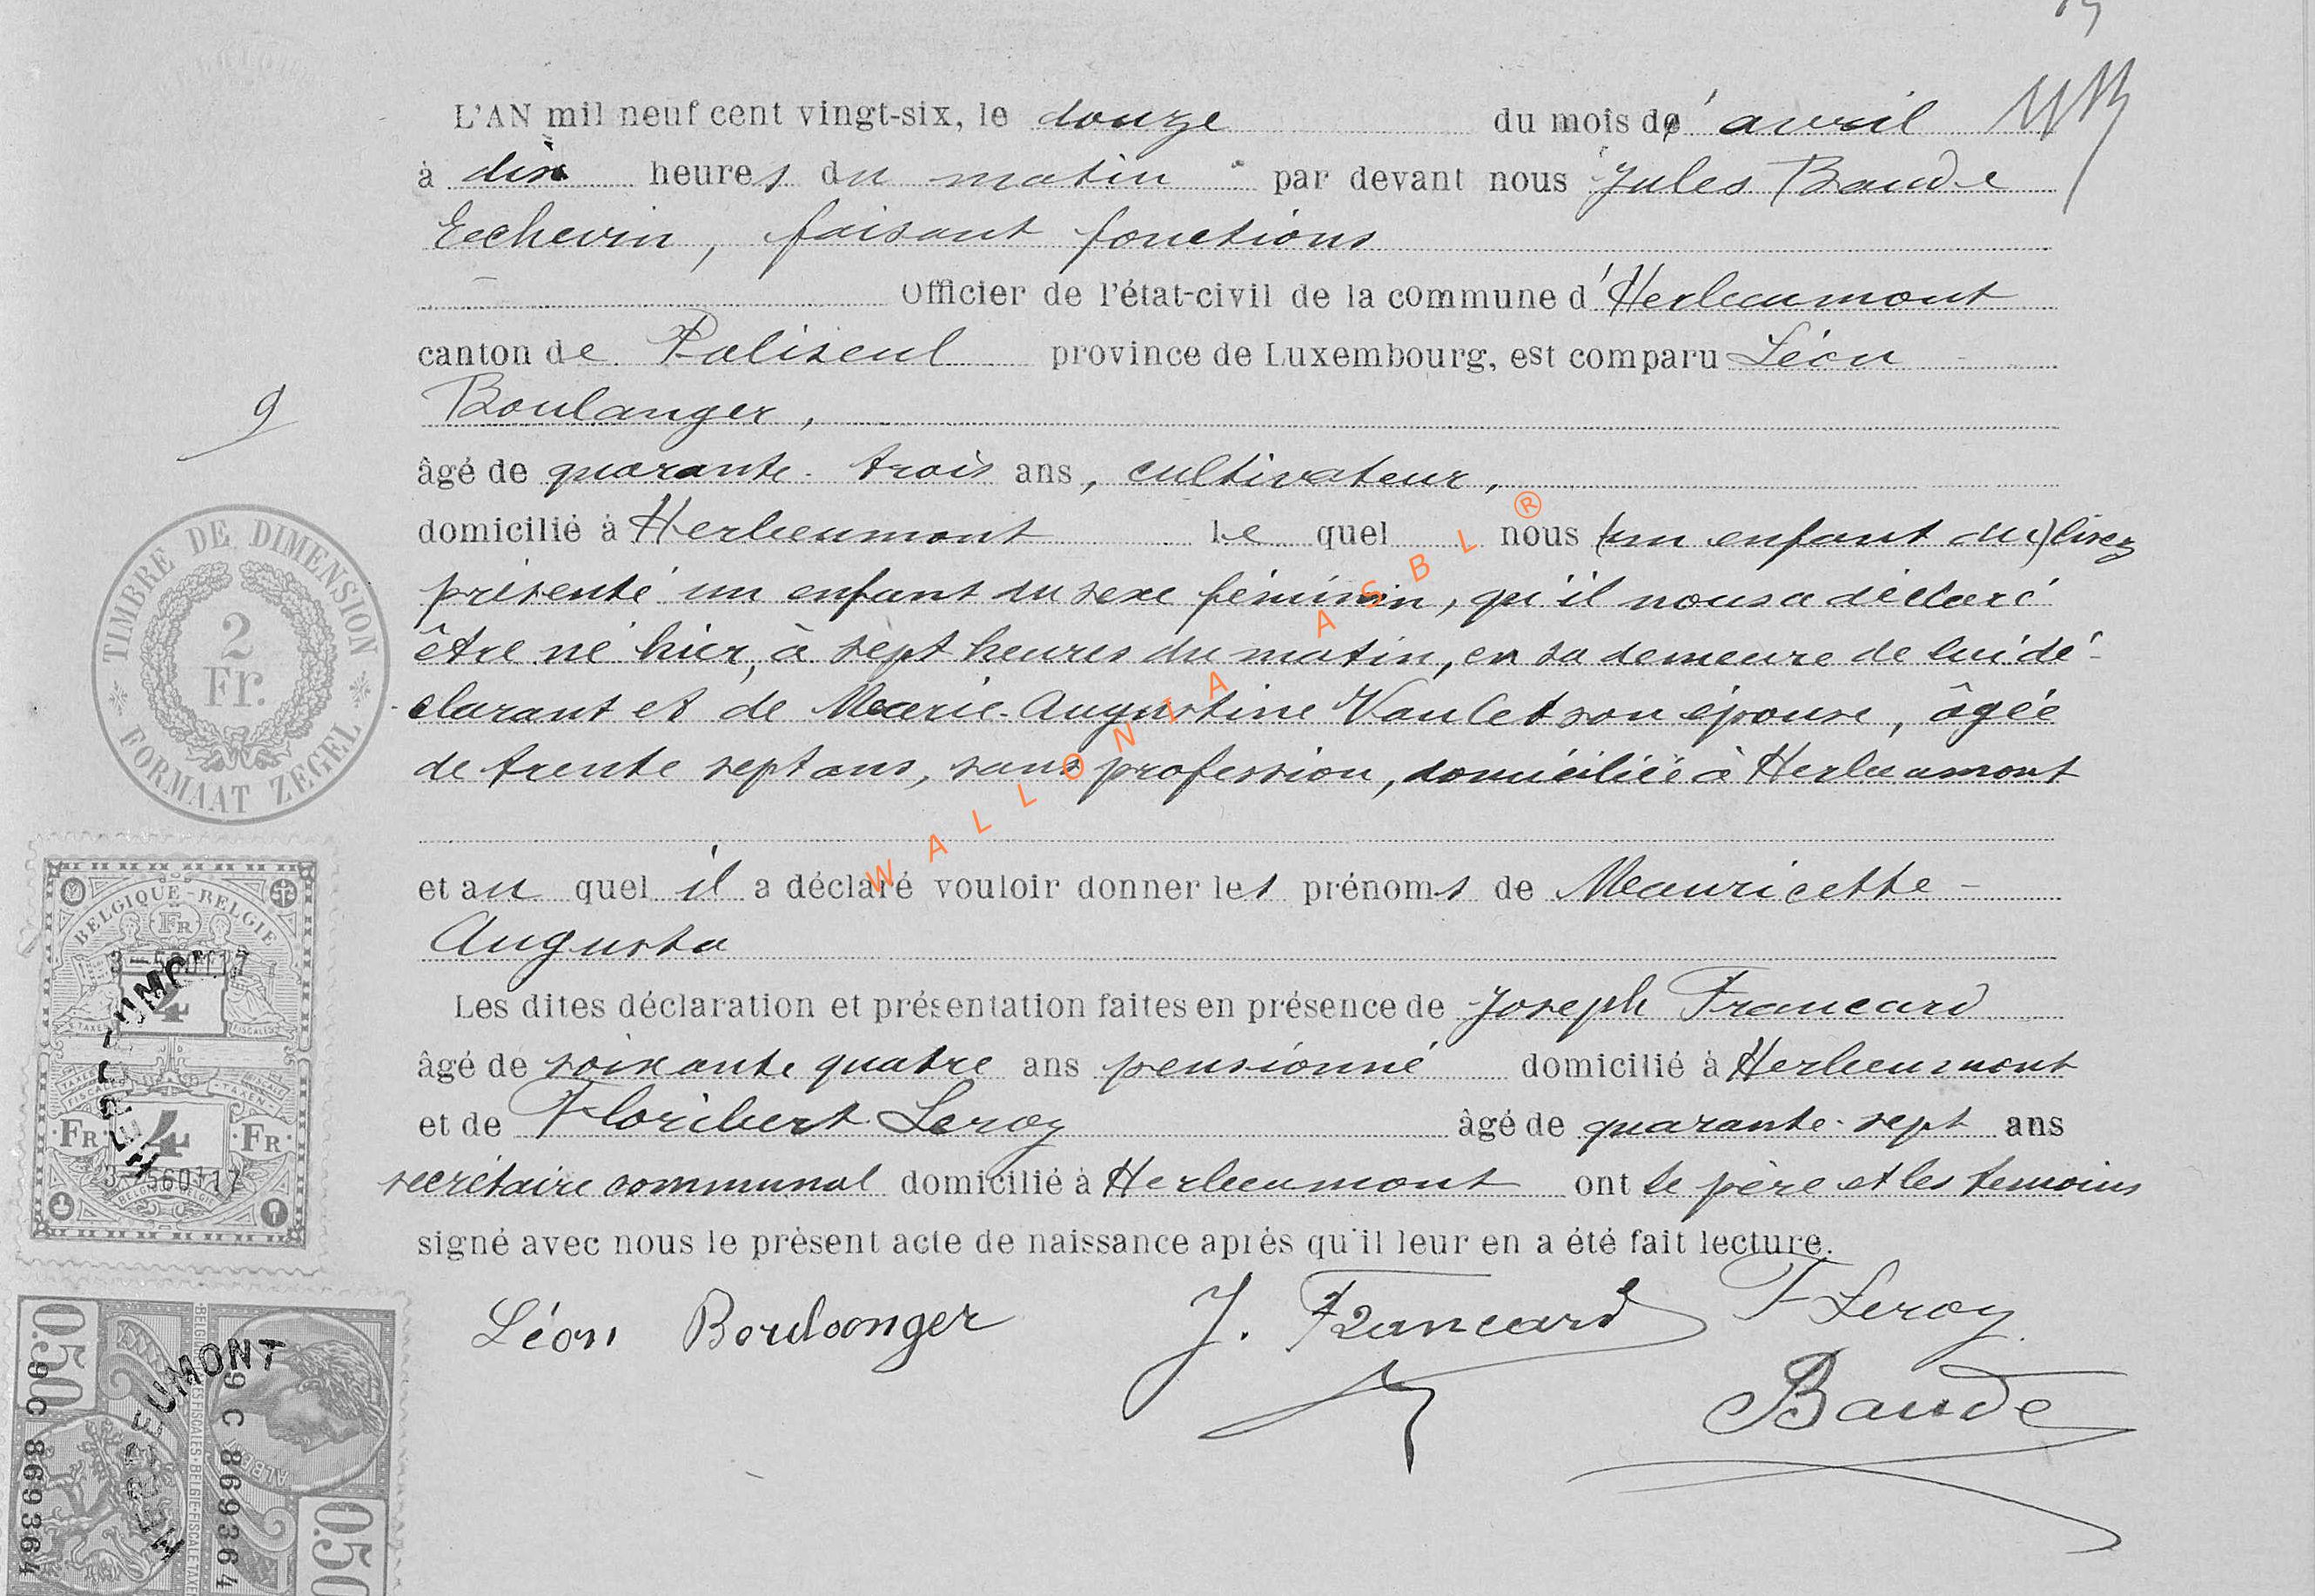 L'AN mil neuf cent vingt-six, le douze du mois d' avril
à dix heures du matin par devant nous Jules Baude
Echevin, faisant fonctions
Officier de l'état-civil de la commune d'Herbeumont
canton de Paliseul province de Luxembourg, est comparu Léon
Boulanger,
âgé de quarante-trois ans, cultivateur,
domicilié à Herbeumont le quel nous (un enfant du) lisez
présenté un enfant du sexe féminin, qu'il nous a déclaré
être né hier, à sept heures du matin, en sa demeure de lui dé-
clarant et de Marie-Augustine Vaulet son épouse, âgée
de trente sept ans, sans profession, domiciliée à Herbeumont
et au quel il a déclaré vouloir donner les prénoms de Mauricette-
Augusta
Les dites déclaration et présentation faites en présence de Joseph Francard
âgé de soixante quatre ans pensionné domicilié à Herbeumont
et de Floribert Leroy âgé de quarante-sept ans
secrétaire communal domicilié à Herbeumont ont le père et les témoins
signé avec nous le présent acte de naissance après qu'il leur en a été fait lecture.
Léon Boulanger J. Francard F Leroy
Baude
9
TIMBRE DE DIMENSION
2
Fr.
FORMAAT ZEGEL
BELGIQUE-BELGIE
FR
4
TAXES FISCALES
FR 4 FR
3-560117
HERBEUMONT
0.50
9C 869364
9C 869364
0.50
WALLONIA ASBL ®